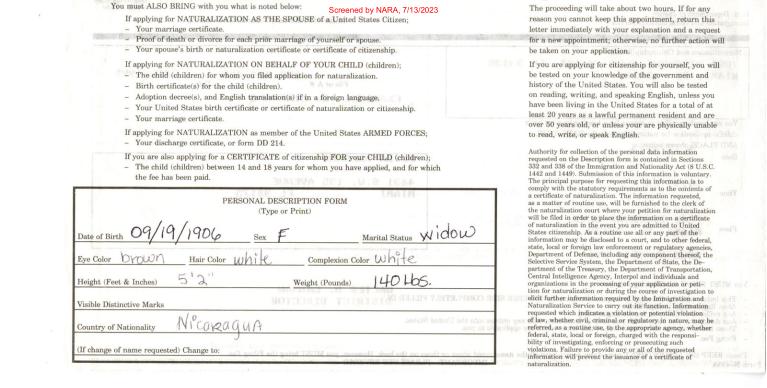 You must ALSO BRING with you what is noted below:
Screened by NARA, 7/13/2023
If applying for NATURALIZATION AS THE SPOUSE of a United States Citizen;
– Your marriage certificate.
– Proof of death or divorce for each prior marriage of yourself or spouse.
– Your spouse's birth or naturalization certificate or certificate of citizenship.
If applying for NATURALIZATION ON BEHALF OF YOUR CHILD (children);
– The child (children) for whom you filed application for naturalization.
– Birth certificate(s) for the child (children).
– Adoption decree(s), and English translation(s) if in a foreign language.
– Your United States birth certificate or certificate of naturalization or citizenship.
– Your marriage certificate.
If applying for NATURALIZATION as member of the United States ARMED FORCES;
– Your discharge certificate, or form DD 214.
If you are also applying for a CERTIFICATE of citizenship FOR your CHILD (children);
– The child (children) between 14 and 18 years for whom you have applied, and for which
the fee has been paid.
PERSONAL DESCRIPTION FORM
(Type or Print)
Date of Birth 09/19/1906 Sex F Marital Status widow
Eye Color brown Hair Color white Complexion Color white
Height (Feet & Inches) 5'2" Weight (Pounds) 140 Lbs.
Visible Distinctive Marks
Country of Nationality Nicaragua
(If change of name requested) Change to:
The proceeding will take about two hours. If for any
reason you cannot keep this appointment, return this
letter immediately with your explanation and a request
for a new appointment; otherwise, no further action will
be taken on your application.
If you are applying for citizenship for yourself, you will
be tested on your knowledge of the government and
history of the United States. You will also be tested
on reading, writing, and speaking English, unless you
have been living in the United States for a total of at
least 20 years as a lawful permanent resident and are
over 50 years old, or unless your are physically unable
to read, write, or speak English.
Authority for collection of the personal data information
requested on the Description form is contained in Sections
332 and 338 of the Immigration and Nationality Act (8 U.S.C.
1442 and 1449). Submission of this information is voluntary.
The principal purpose for requesting this information is to
comply with the statutory requirements as to the contents of
a certificate of naturalization. The information requested,
as a matter of routine use, will be furnished to the clerk of
the naturalization court where your petition for naturalization
will be filed in order to place the information on a certificate
of naturalization in the event you are admitted to United
States citizenship. As a routine use all or any part of the
information may be disclosed to a court, and to other federal,
state, local or foreign law enforcement or regulatory agencies,
Department of Defense, including any component thereof, the
Selective Service System, the Department of State, the De-
partment of the Treasury, the Department of Transportation,
Central Intelligence Agency, Interpol and individuals and
organizations in the processing of your application or peti-
tion for naturalization or during the course of investigation to
elicit further information required by the Immigration and
Naturalization Service to carry out its function. Information
requested which indicates a violation or potential violation
of law, whether civil, criminal or regulatory in nature, may be
referred, as a routine use, to the appropriate agency, whether
federal, state, local or foreign, charged with the responsi-
bility of investigating, enforcing or prosecuting such
violations. Failure to provide any or all of the requested
information will prevent the issuance of a certificate of
naturalization.